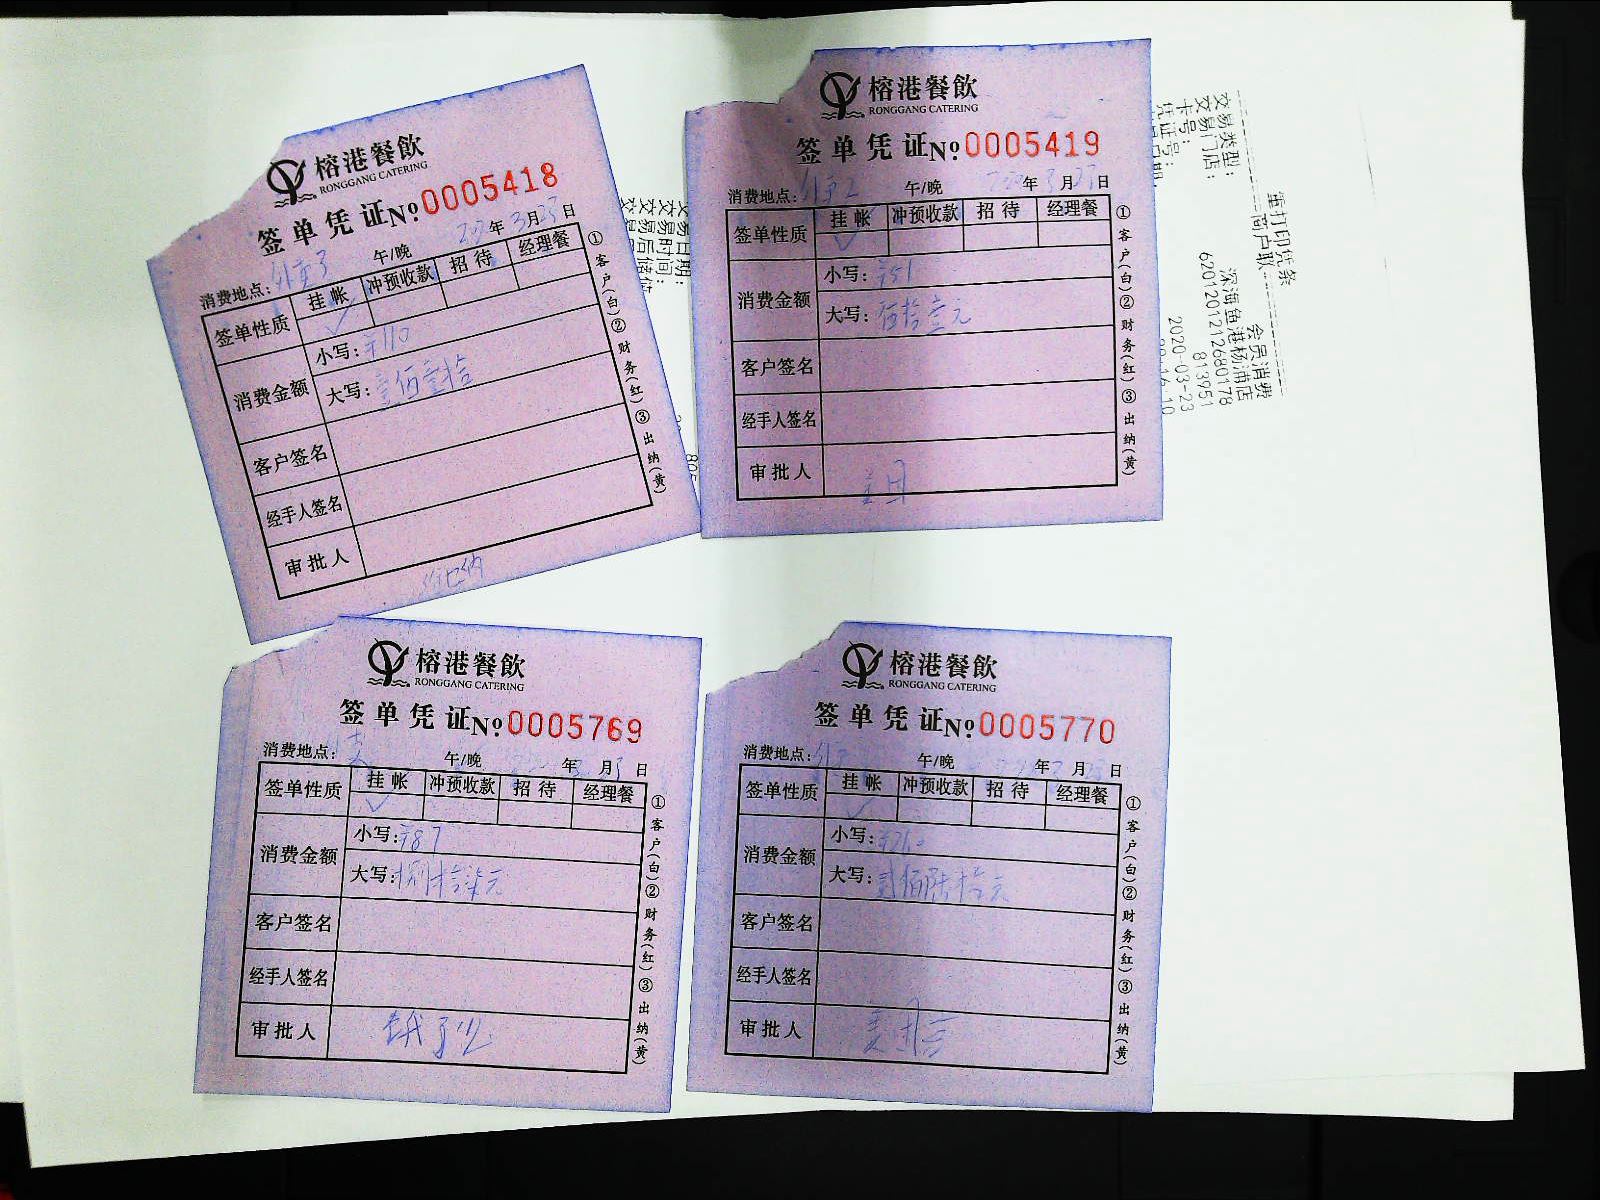 榕港餐飲
RONGGANG CATERING
签单凭证№0005418
消费地点: 午/晚 年3月23日
签单性质 挂帐 冲预收款 招待 经理餐
消费金额 小写:110
大写:壹佰壹拾
客户签名
经手人签名
审批人
①客户(白)②财务(红)③出纳(黄)
榕港餐飲
RONGGANG CATERING
签单凭证№0005419
消费地点: 午/晚 年3月23日
签单性质 挂帐 冲预收款 招待 经理餐
消费金额 小写:51
大写:伍拾壹元
客户签名
经手人签名
审批人 美团
①客户(白)②财务(红)③出纳(黄)
榕港餐飲
RONGGANG CATERING
签单凭证№0005769
消费地点: 午/晚 年 月 日
签单性质 挂帐 冲预收款 招待 经理餐
消费金额 小写:87
大写:捌拾柒元
客户签名
经手人签名
审批人 饿了么
①客户(白)②财务(红)③出纳(黄)
榕港餐飲
RONGGANG CATERING
签单凭证№0005770
消费地点: 午/晚 年 月 日
签单性质 挂帐 冲预收款 招待 经理餐
消费金额 小写:
大写:贰佰陆拾元
客户签名
经手人签名
审批人 美团
①客户(白)②财务(红)③出纳(黄)
重打印凭条
商户联
交易类型: 会员消费
交易门店: 深海鱼港杨浦店
卡号: 6201201212680178
凭证号: 813951
2020-03-23
交易日期:
交易时间: